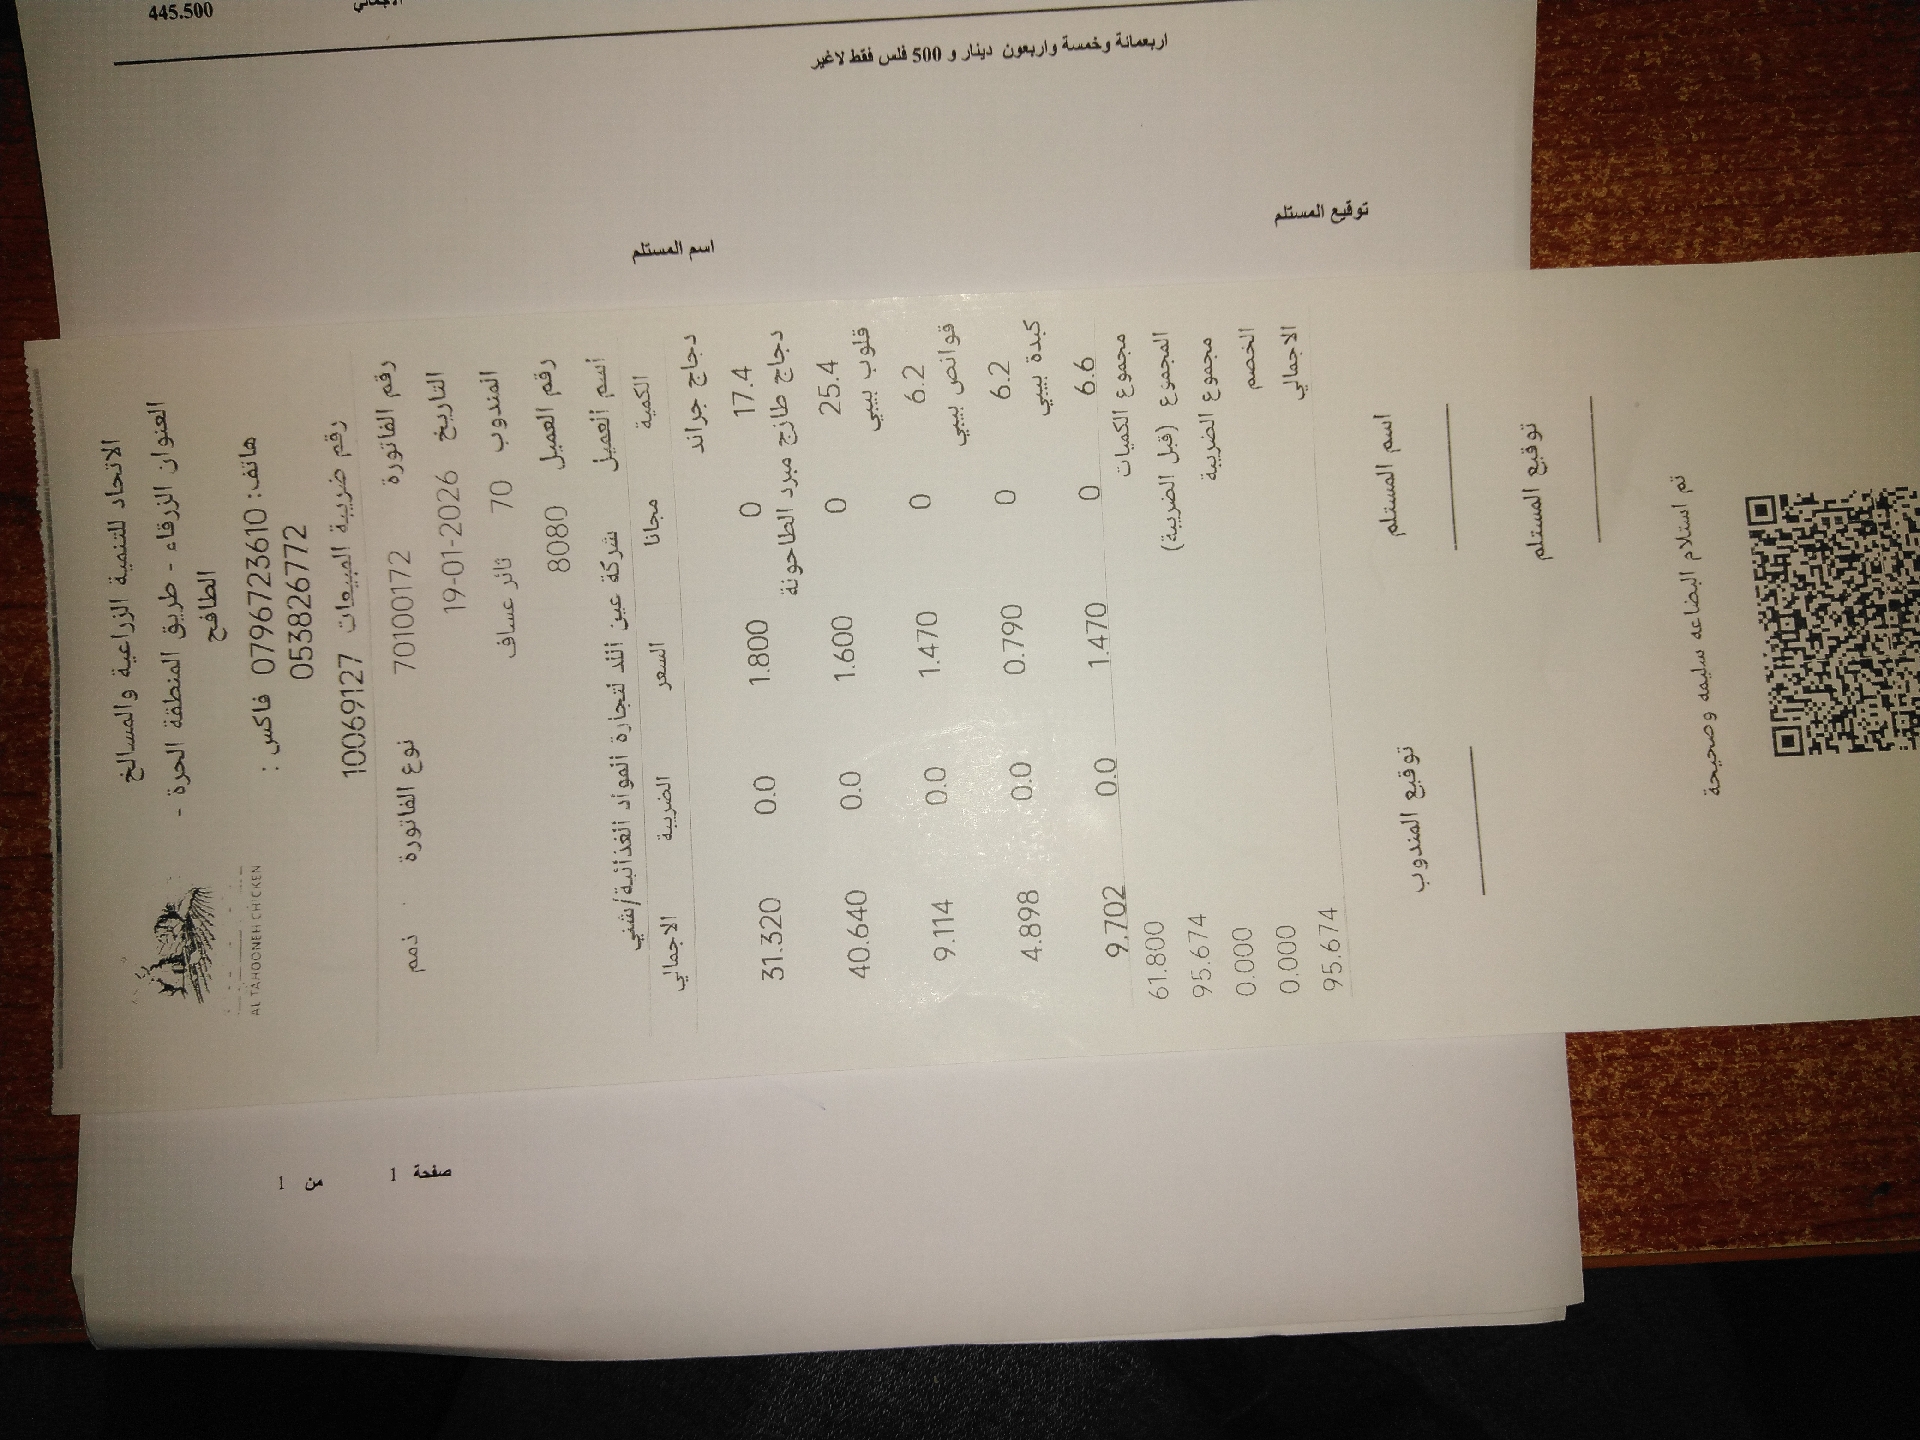 445.500
الاجمالي
اربعمائة وخمسة واربعون دينار و 500 فلس فقط لاغير
توقيع المستلم
اسم المستلم
الاتحاد للتنمية الزراعية والمسالخ
العنوان الزرقاء - طريق المنطقة الحرة -
الطافح
هاتف: 0796723610 فاكس :
053826772
رقم ضريبة المبيعات 10069127
AL TAHOONEH CHICKEN
رقم الفاتورة 70100172 نوع الفاتورة ذمم
التاريخ 19-01-2026
المندوب 70 ثائر عساف
رقم العميل 8080
اسم العميل شركة عين الند لتجارة المواد الغذائية/شفي
الكمية مجانا السعر الضريبة الاجمالي
دجاج جراند
17.4 0 1.800 0.0 31.320
دجاج طازج مبرد الطاحونة
25.4 0 1.600 0.0 40.640
قلوب بيبي
6.2 0 1.470 0.0 9.114
قوانص بيبي
6.2 0 0.790 0.0 4.898
كبدة بيبي
6.6 0 1.470 0.0 9.702
مجموع الكميات 61.800
المجموع (قبل الضريبة) 95.674
مجموع الضريبة 0.000
الخصم 0.000
الاجمالي 95.674
اسم المستلم توقيع المندوب
توقيع المستلم
تم استلام البضاعه سليمه وصحيحة
صفحة 1 من 1